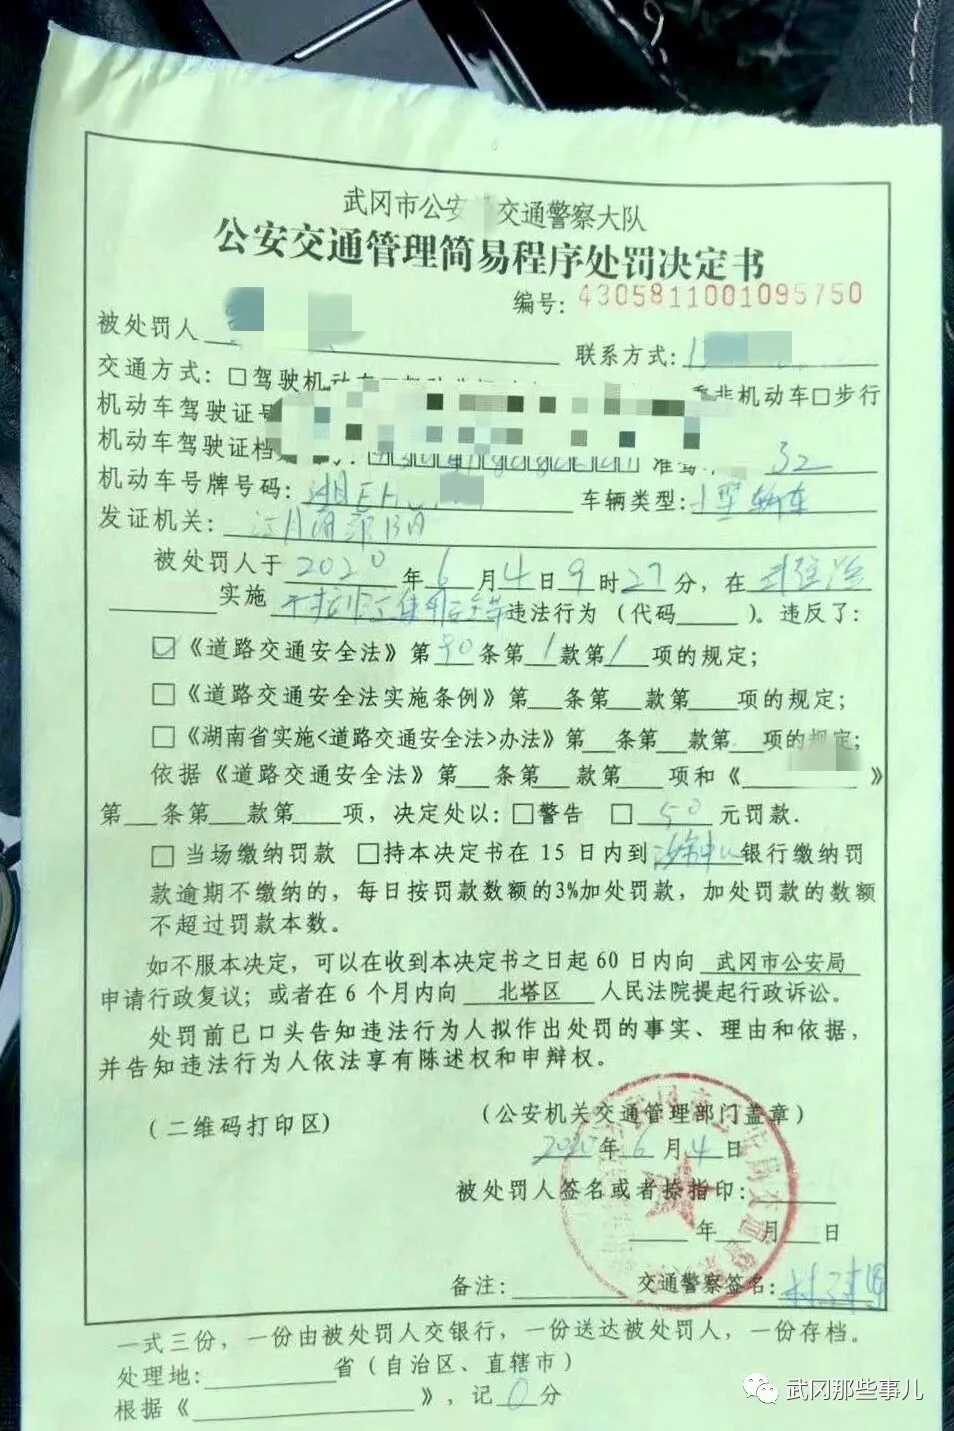 武冈市公安 交通警察大队
公安交通管理简易程序处罚决定书
编号: 4305811001095750
被处罚人
联系方式:
交通方式: □驾驶机动车 非机动车□步行
机动车驾驶证号
机动车驾驶证档 准驾
机动车号牌号码: 湘E 车辆类型: 小型轿车
发证机关:
被处罚人于 2020 年 6 月 4 日 9 时 27 分, 在
实施 违法行为 (代码 )。违反了:
☑《道路交通安全法》第 90 条第 1 款第 1 项的规定;
□《道路交通安全法实施条例》第 条第 款第 项的规定;
□《湖南省实施<道路交通安全法>办法》第 条第 款第 项的规定;
依据《道路交通安全法》第 条第 款第 项和《 》
第 条第 款第 项, 决定处以: □警告 □ 50 元罚款.
□ 当场缴纳罚款 □持本决定书在 15 日内到 银行缴纳罚
款逾期不缴纳的, 每日按罚款数额的3%加处罚款, 加处罚款的数额
不超过罚款本数。
如不服本决定, 可以在收到本决定书之日起 60 日内向 武冈市公安局
申请行政复议; 或者在 6 个月内向 北塔区 人民法院提起行政诉讼。
处罚前已口头告知违法行为人拟作出处罚的事实、理由和依据,
并告知违法行为人依法享有陈述权和申辩权。
(二维码打印区) (公安机关交通管理部门盖章)
2020 年 6 月 4 日
被处罚人签名或者捺指印:
年 月 日
备注: 交通警察签名:
一式三份, 一份由被处罚人交银行, 一份送达被处罚人, 一份存档。
处理地: 省 (自治区、直辖市)
根据《 》, 记 0 分
武冈那些事儿